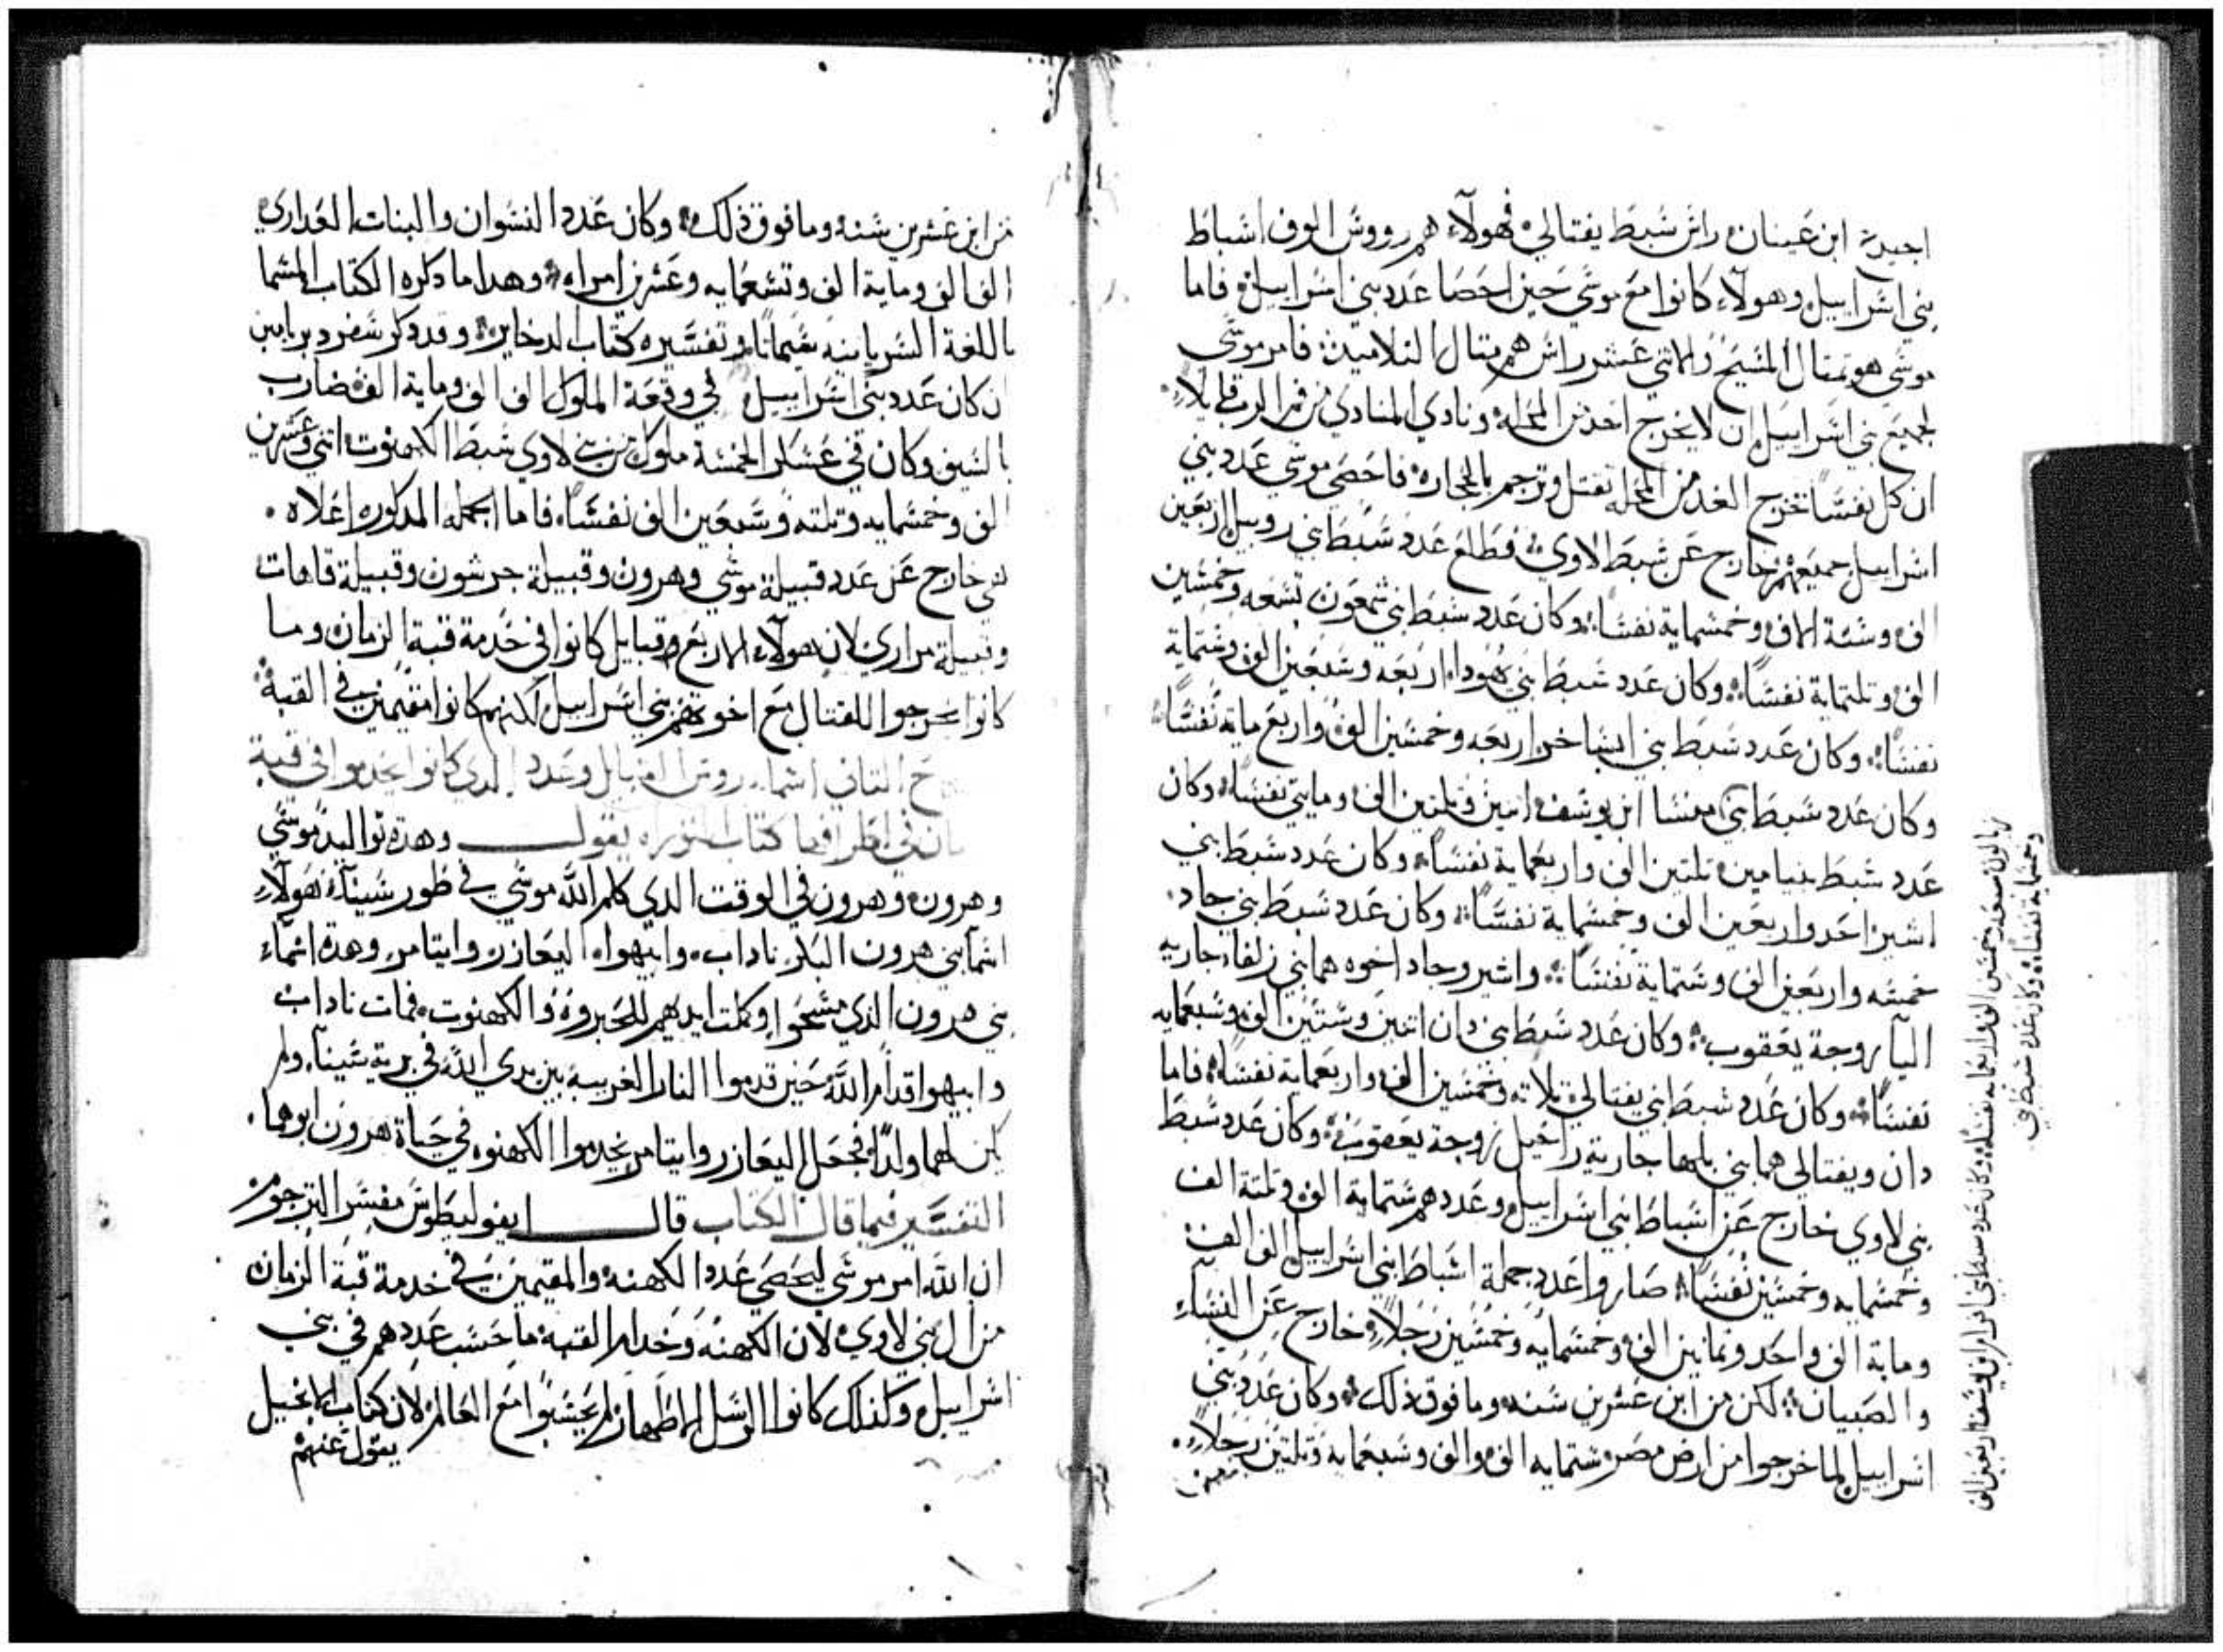 اجيرة ابن عينان راش شبط يفتالي فهولاء هم رووش الوف اشباط
بني اشراييل وهولاء كانوا مع موشي حين احصا عدد بني اشراييل فاما
موشي هو تمتال المشيح والاتني عشر راش هم متال التلاميد فامر موشي
لجميع بني اشراييل ان لا يخرج احد من المحله ونادي المنادي من قبل الرب قايلاً
ان كل نفسًا تخرج الغد من المحله تقتل وترجم بالحجاره فاحصي موشي عدد بني
اشراييل جميعهم خارج عن شبط لاوي فطلع عدد شبط بني روبيل اربعين
الف وشتة الاف وخمشماية نفسًا وكان عدد شبط بني شمعون تشعه وخمشين
الف وتلتماية نفسًا وكان عدد شبط بني يهودا اربعه وشبعين الف وشتماية
نفسًا وكان عدد شبط بني ايشاخر اربعه وخمشين الف واربع ماية نفسًا
وكان عدد شبط بني منشا ابن يوشف اتنين وتلتين الف ومايتي نفسًا وكان
عدد شبط بنيامين تلتين الف واربعماية نفسًا وكان عدد شبط بني
اشير احد واربعين الف وخمشماية نفسًا وكان عدد شبط بني جاد
خمشه واربعين الف وشتماية نفسًا واشير وجاد اخوه هما بني زلفا جارية
اليا زوجة يعقوب وكان عدد شبط بني دان اتنين وشتين الف وشبعمايه
نفسًا وكان عدد شبط بني يفتالي تلاته وخمشين الف واربعماية نفسًا فاما
دان ويفتالي هما بني بلها جارية راحيل زوجة يعقوب وكان عدد شبط
بني لاوي خارج عن اشباط بني اشراييل وعددهم شتماية الف وتلتة الف
وخمشمايه وخمشين نفسًا صاروا عدد جملة اشباط بني اشراييل الف الف
وماية الف واحد وتمانين الف وخمشمايه وخمشين رجلاً خارج عن النشاء
والصبيان لكن من ابن عشرين شنه وما فوق ذلك وكان عدد بني
اشراييل لما خرجوا من ارض مصر شتمايه الف والف وشبعماية وتلتين رجلاً
زبالون شبعه وخمشين الف واربعمايه نفسًا وكان عدد شبط بني افرام ابن يوشف اربعين الف
وخمشماية نفسًا وكان عدد شبط بني
من ابن عشرين شنه وما فوق ذلك وكان عدد النشوان والبنات العداري
الف الف وماية الف وتشعمايه وعشرين امراه وهدا ما دكره الكتاب المشما
باللغة الشريانيه شيمانا وتفشيره كتاب الدخاير وقد دكر شفر دبريامين
ان كان عدد بني اشراييل في وقعة الملوك الف الف وماية الف ضارب
بالشيف وكان في عشكر الخمشة ملوك من بني لاوي شبط الكهنوت اتني وعشرين
الف وخمشمايه وتلته وشبعين الف نفسًا فاما الجمله المدكوره اعلاه
هي خارج عن عدد قبيلة موشي وهرون وقبيلة جرشون وقبيلة قاهات
وقبيلة مراري لان هولاء الاربع قبايل كانوا في خدمة قبة الزمان وما
كانوا يخرجوا للقتال مع اخوتهم بني اشراييل لكنهم كانوا مقيمين في القبة
التاني اشماء روش القبايل وعدد الدي كانوا يخدموا في قبة
كتاب التوراه يقول وهده تواليد موشي
وهرون وهرون في الوقت الدي كلم الله موشي في طور شيناء هولاء
اشما بني هرون البكر ناداب وابيهوا اليعازر وايتامر وهده اشماء
بني هرون الدي مشحوا وكملت ايديهم للحبروة والكهنوت فمات ناداب
وابيهوا قدام الله حين قدموا النار الغريبة بين يدي الله في برية شيناء ولم
يكن لهما ولدًا فجعل اليعازر وايتامر يخدموا الكهنوه في حياة هرون ابوهما
التفشير فيما قال الكتاب قال ايفوليطوش مفشر الترجوم
ان الله امر موشي ليحصي عدد الكهنه والمقيمين في خدمة قبة الزمان
من ال بني لاوي لان الكهنه وخدام القبة ما حشب عددهم في بني
اشراييل وكذلك كانوا الرشل الاطهار لم يحشبوا مع العالم لان كتاب الانجيل
يقول عنهم